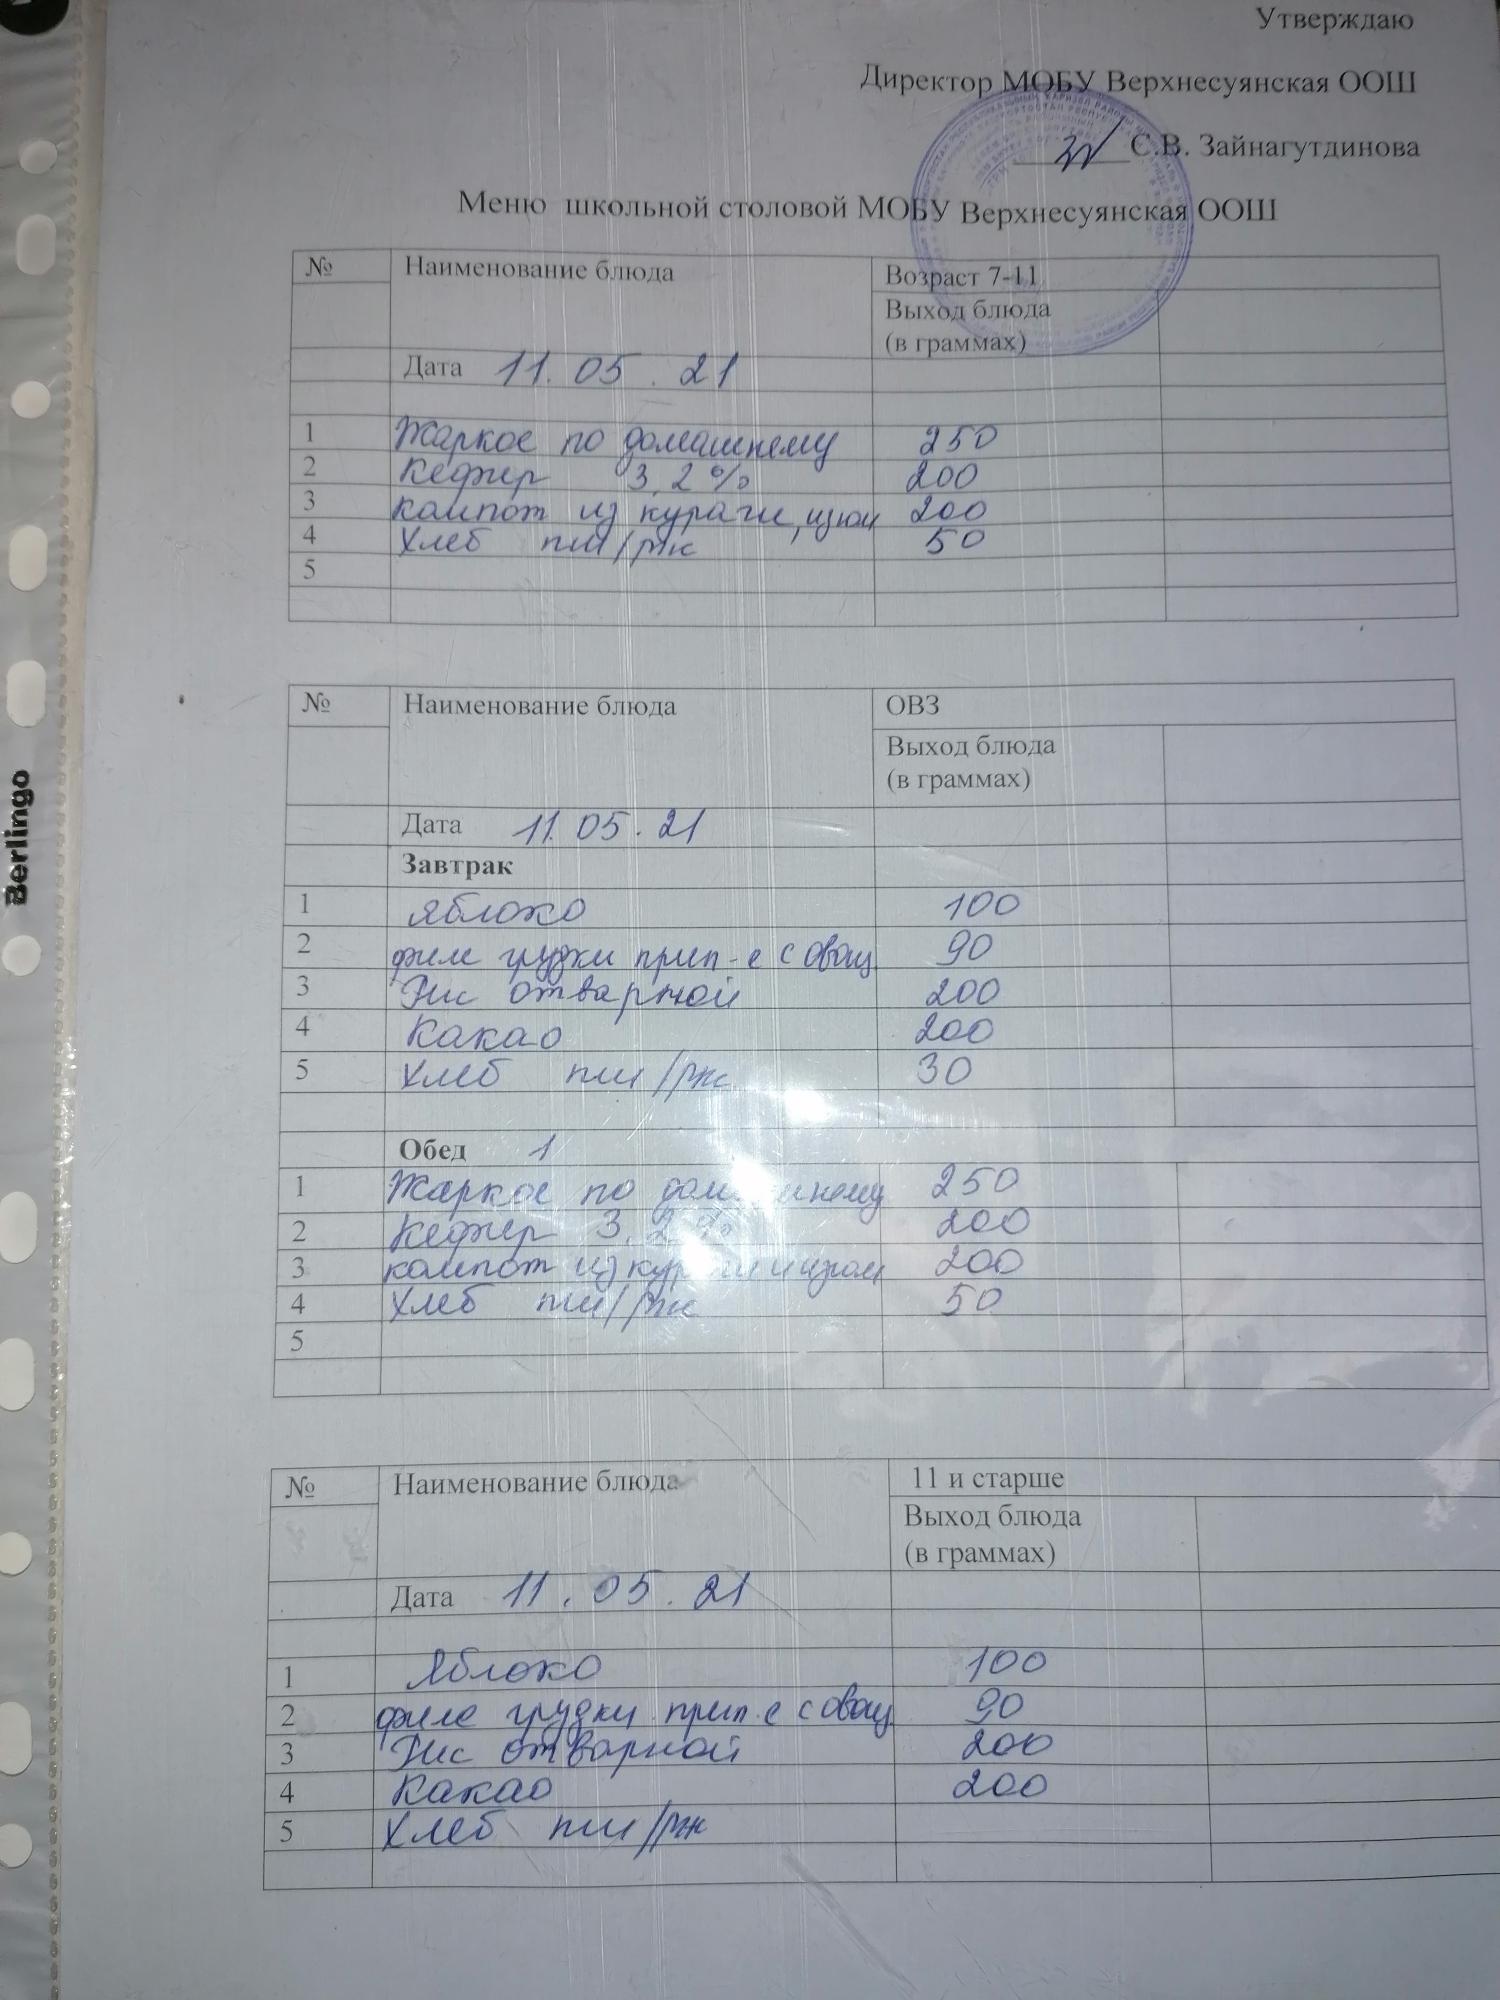 Утверждаю
Директор МОБУ Верхнесуянская ООШ
С.В. Зайнагутдинова
Меню школьной столовой МОБУ Верхнесуянская ООШ
№ Наименование блюда Возраст 7-11
Выход блюда
(в граммах)
Дата 11.05.21
1 Жаркое по домашнему 250
2 Кефир 3,2% 200
3 компот из кураги, изюм 200
4 Хлеб пш/рж 50
5
№ Наименование блюда ОВЗ
Выход блюда
(в граммах)
Дата 11.05.21
Завтрак
1 яблоко 100
2 филе грудки прип-е с овощ 90
3 Рис отварной 200
4 Какао 200
5 Хлеб пш/рж 30
Обед 1
1 Жаркое по домашнему 250
2 Кефир 3,2% 200
3 компот из кураги и изюм 200
4 Хлеб пш/рж 50
5
№ Наименование блюда 11 и старше
Выход блюда
(в граммах)
Дата 11.05.21
1 Яблоко 100
2 филе грудки прип-е с овощ 90
3 Рис отварной 200
4 Какао 200
5 Хлеб пш/рж
Berlingo